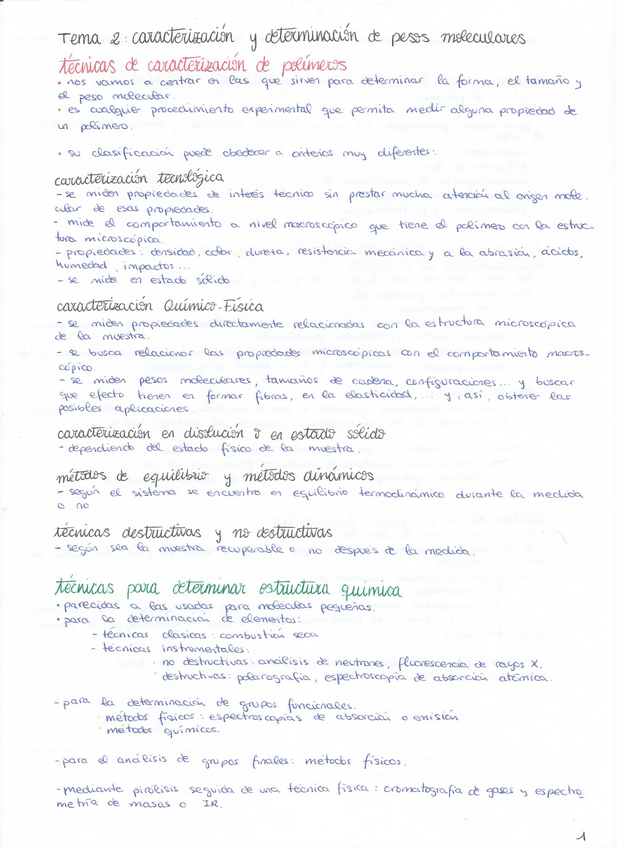 Tema 2: caracterización y determinación de pesos moleculares
técnicas de caracterización de polímeros
• nos vamos a centrar en las que sirven para determinar la forma, el tamaño y
el peso molecular.
• es cualquier procedimiento experimental que permita medir alguna propiedad de
un polímero.
• su clasificación puede obedecer a criterios muy diferentes:
caracterización tecnológica
- se miden propiedades de interés técnico sin prestar mucha atención al origen mole-
cular de esas propiedades.
- mide el comportamiento a nivel macroscópico que tiene el polímero con la estruc-
tura microscópica.
- propiedades: densidad, color, dureza, resistencia mecánica y a la abrasión, ácidos,
humedad, impactos...
- se mide en estado sólido
caracterización Químico-Física
- se miden propiedades directamente relacionadas con la estructura microscópica
de la muestra.
- se busca relacionar las propiedades microscópicas con el comportamiento macros-
cópico.
- se miden pesos moleculares, tamaños de cadena, configuraciones... y buscar
que efecto tienen en formar fibras, en la elasticidad, ... y, así, obtener las
posibles aplicaciones.
caracterización en disolución o en estado sólido
- dependiendo del estado físico de la muestra.
métodos de equilibrio y métodos dinámicos
- según el sistema se encuentra en equilibrio termodinámico durante la medida
o no
técnicas destructivas y no destructivas
- según sea la muestra recuperable o no despues de la medida.
técnicas para determinar estructura quimica
• parecidas a las usadas para moleculas pequeñas.
• para la determinación de elementos:
- técnicas clásicas: combustión seca
- técnicas instrumentales:
· no destructivas: análisis de neutrones, fluorescencia de rayos X.
· destructivas: polarografía, espectroscopia de absorción atómica.
- para la determinación de grupos funcionales.
· métodos físicos: espectroscopias de absorción o emisión
· métodos químicos.
- para el análisis de grupos finales: metodos físicos.
- mediante pirólisis seguida de una técnica física: cromatografía de gases y espectro
metría de masas o IR.
1